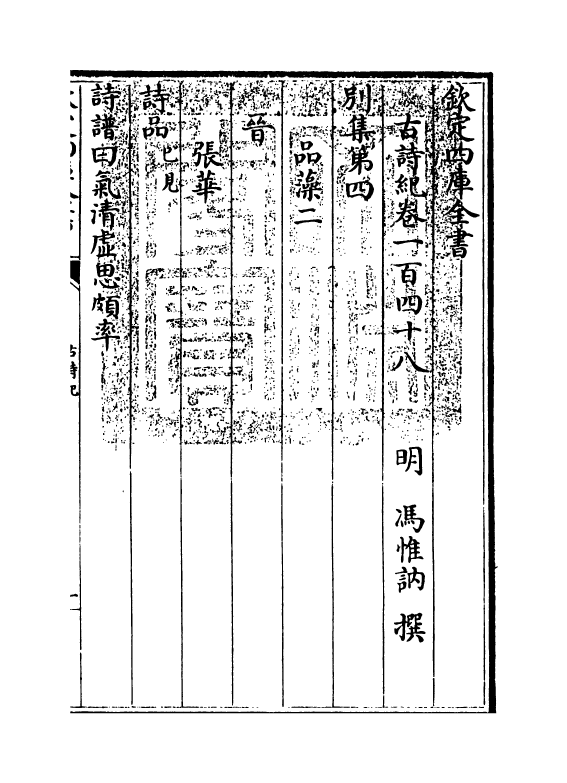 欽定四庫全書
古詩紀卷一百四十八 明 馮惟訥 撰
別集第四
品藻二
晉
張華
詩品已見
詩譜曰氣清虛思頗率
古詩紀
一